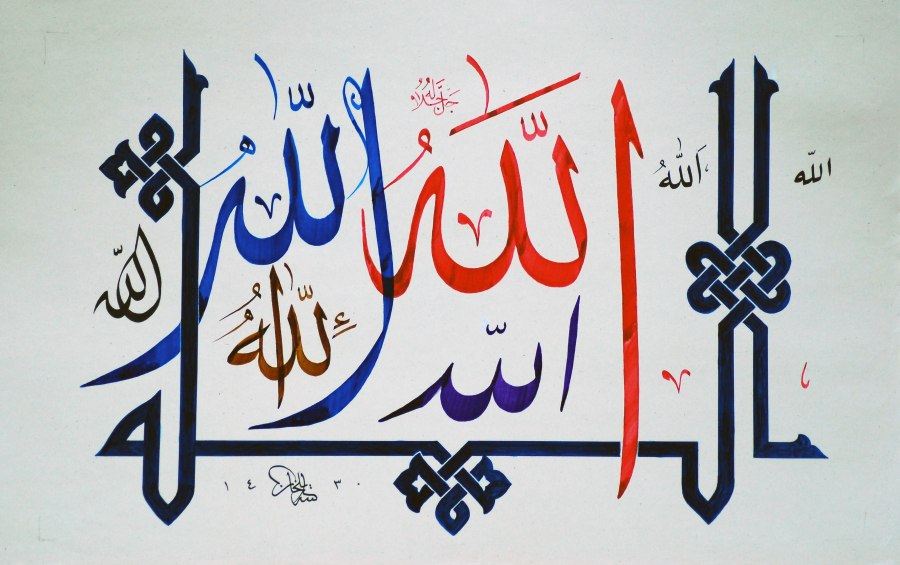 الله
الله
اللَّهُ
اللّٰه
جل جلاله
اللّٰهُ
اللّٰهُ
اللّٰه
الله
١٤٣٠